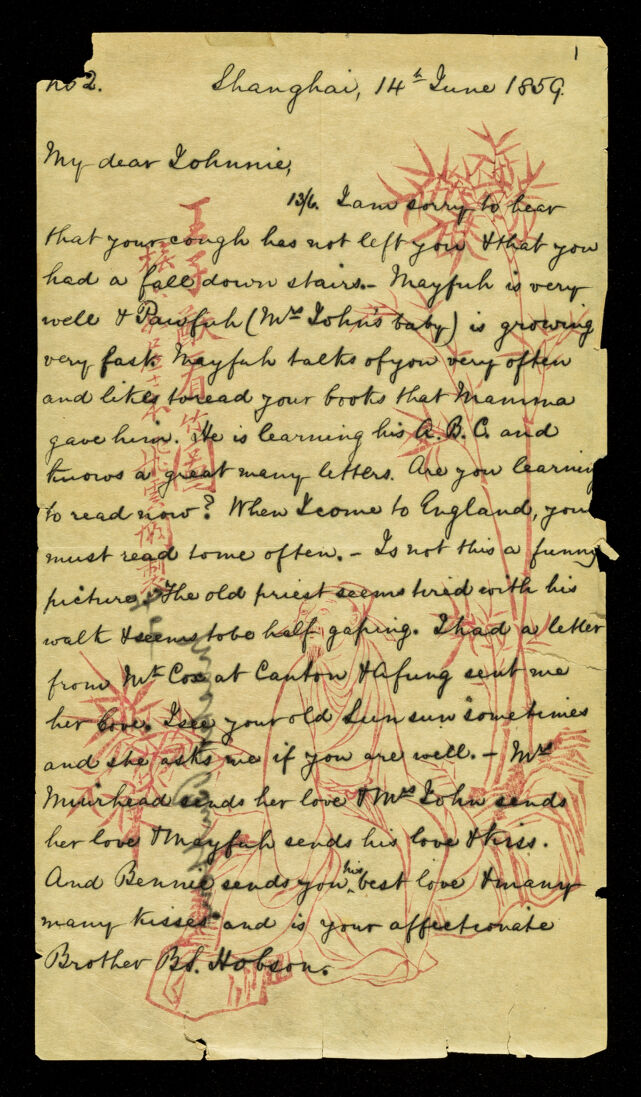 no 2.
1
Shanghai, 14th June 1859.
My dear Johnnie,
13/6. I am sorry to hear
that your cough has not left you & that you
had a fall down stairs. - Mayfuh is very
well & Pawfuh (Mrs John's baby) is growing
very fast. Mayfuh talks of you very often
and likes to read your books that Mamma
gave him. He is learning his A. B. C. and
knows a great many letters. Are you learning
to read now? When I come to England, you
must read to me often. - Is not this a funny
picture. The old priest seems tired with his
walk & seems to be half gaping. I had a letter
from Mr Cox at Canton & Afung sent me
her love. I see your old Sun sun sometimes
and she asks me if you are well. - Mrs
Muirhead sends her love & Mrs John sends
her love & Mayfuh sends his love & kiss.
And Bennie sends you his best love & many
many kisses and is your affectionate
Brother B. Hobson.
王子猷有竹園